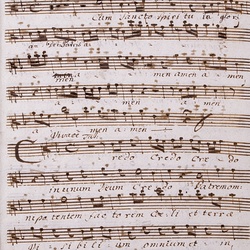 Cum Sancto spiritu in glori
a Dei Patris a
men amen amen
a men a men
a men amen
Credo Credo Credo
in unum Deum Credo Patrem om
nipotentem factorem Coeli et terrae
Visi bili um omnium et in